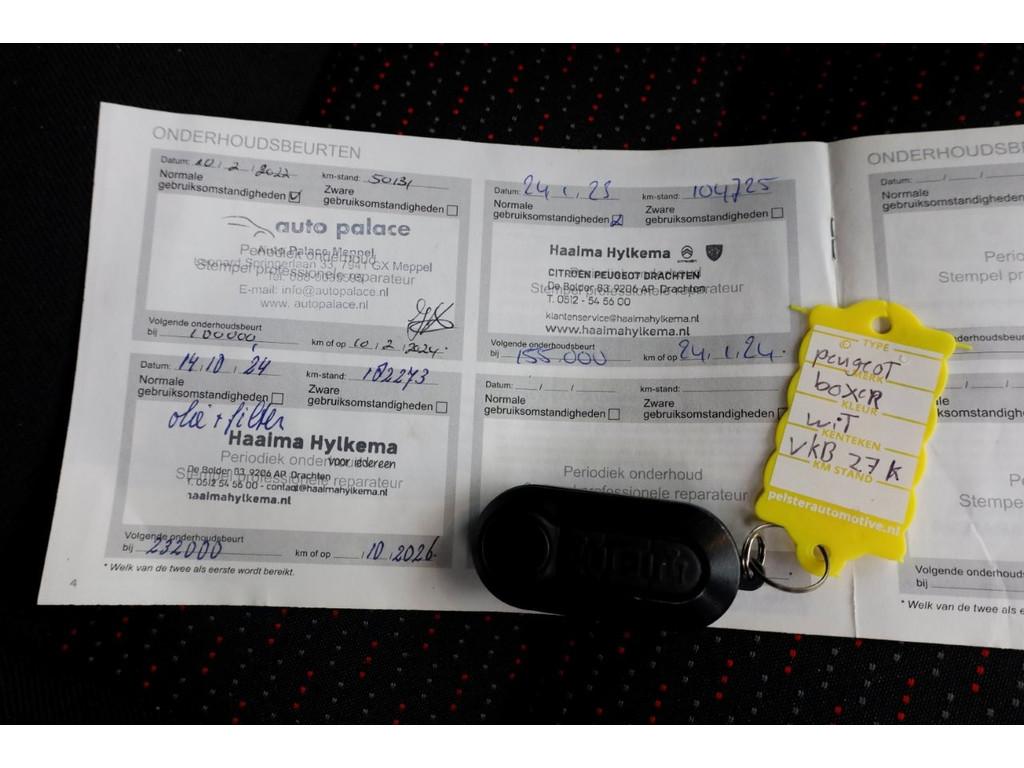 ONDERHOUDSBEURTEN
Datum: 10.2.2022 km-stand: 50131
Normale gebruiksomstandigheden Zware gebruiksomstandigheden
auto palace
Auto Palace Meppel
Periodiek onderhoud
Leonard Springerlaan 33, 7941 GX Meppel
Stempel professionele reparateur
E-mail: info@autopalace.nl
www. autopalace.nl
Volgende onderhoudsbeurt
bij 100000, km of op 10.2.2024.
Datum: 24.1.23 km-stand: 104725
Normale gebruiksomstandigheden Zware gebruiksomstandigheden
Haaima Hylkema
CITROËN PEUGEOT DRACHTEN
De Bolder 83, 9206 AP Drachten
Stempel professionele reparateur
T. 0512 - 54 56 00
klantenservice@haaimahylkema.nl
www.haaimahylkema.nl
Volgende onderhoudsbeurt
bij 155.000 km of op 24.1.24.
Datum: 14.10.24 km-stand: 182273
Normale gebruiksomstandigheden Zware gebruiksomstandigheden
olie + filter
Haaima Hylkema
voor iedereen
Periodiek onderhoud
De Bolder 83, 9206 AP Drachten
Stempel professionele reparateur
T. 0512 54 56 00 - contact@haaimahylkema.nl
haaimahylkema.nl
Volgende onderhoudsbeurt
bij 232000 km of op .10.2026.
* Welk van de twee als eerste wordt bereikt.
4
Datum: / / km-stand:
Normale gebruiksomstandigheden Zware gebruiksomstandigheden
Periodiek onderhoud
professionele reparateur
TYPE
peugeot
MERK
boxer
KLEUR
wit
KENTEKEN
VKB 27 K
KM STAND
pelsterautomotive.nl
ONDERHOUDSBE
Datum: / /
Normale
gebruiksomstandigheden
Perio
Stempel p
Normale
Perio
Stempel p
Volgende onderhouds
bij
* Welk van de twee als e